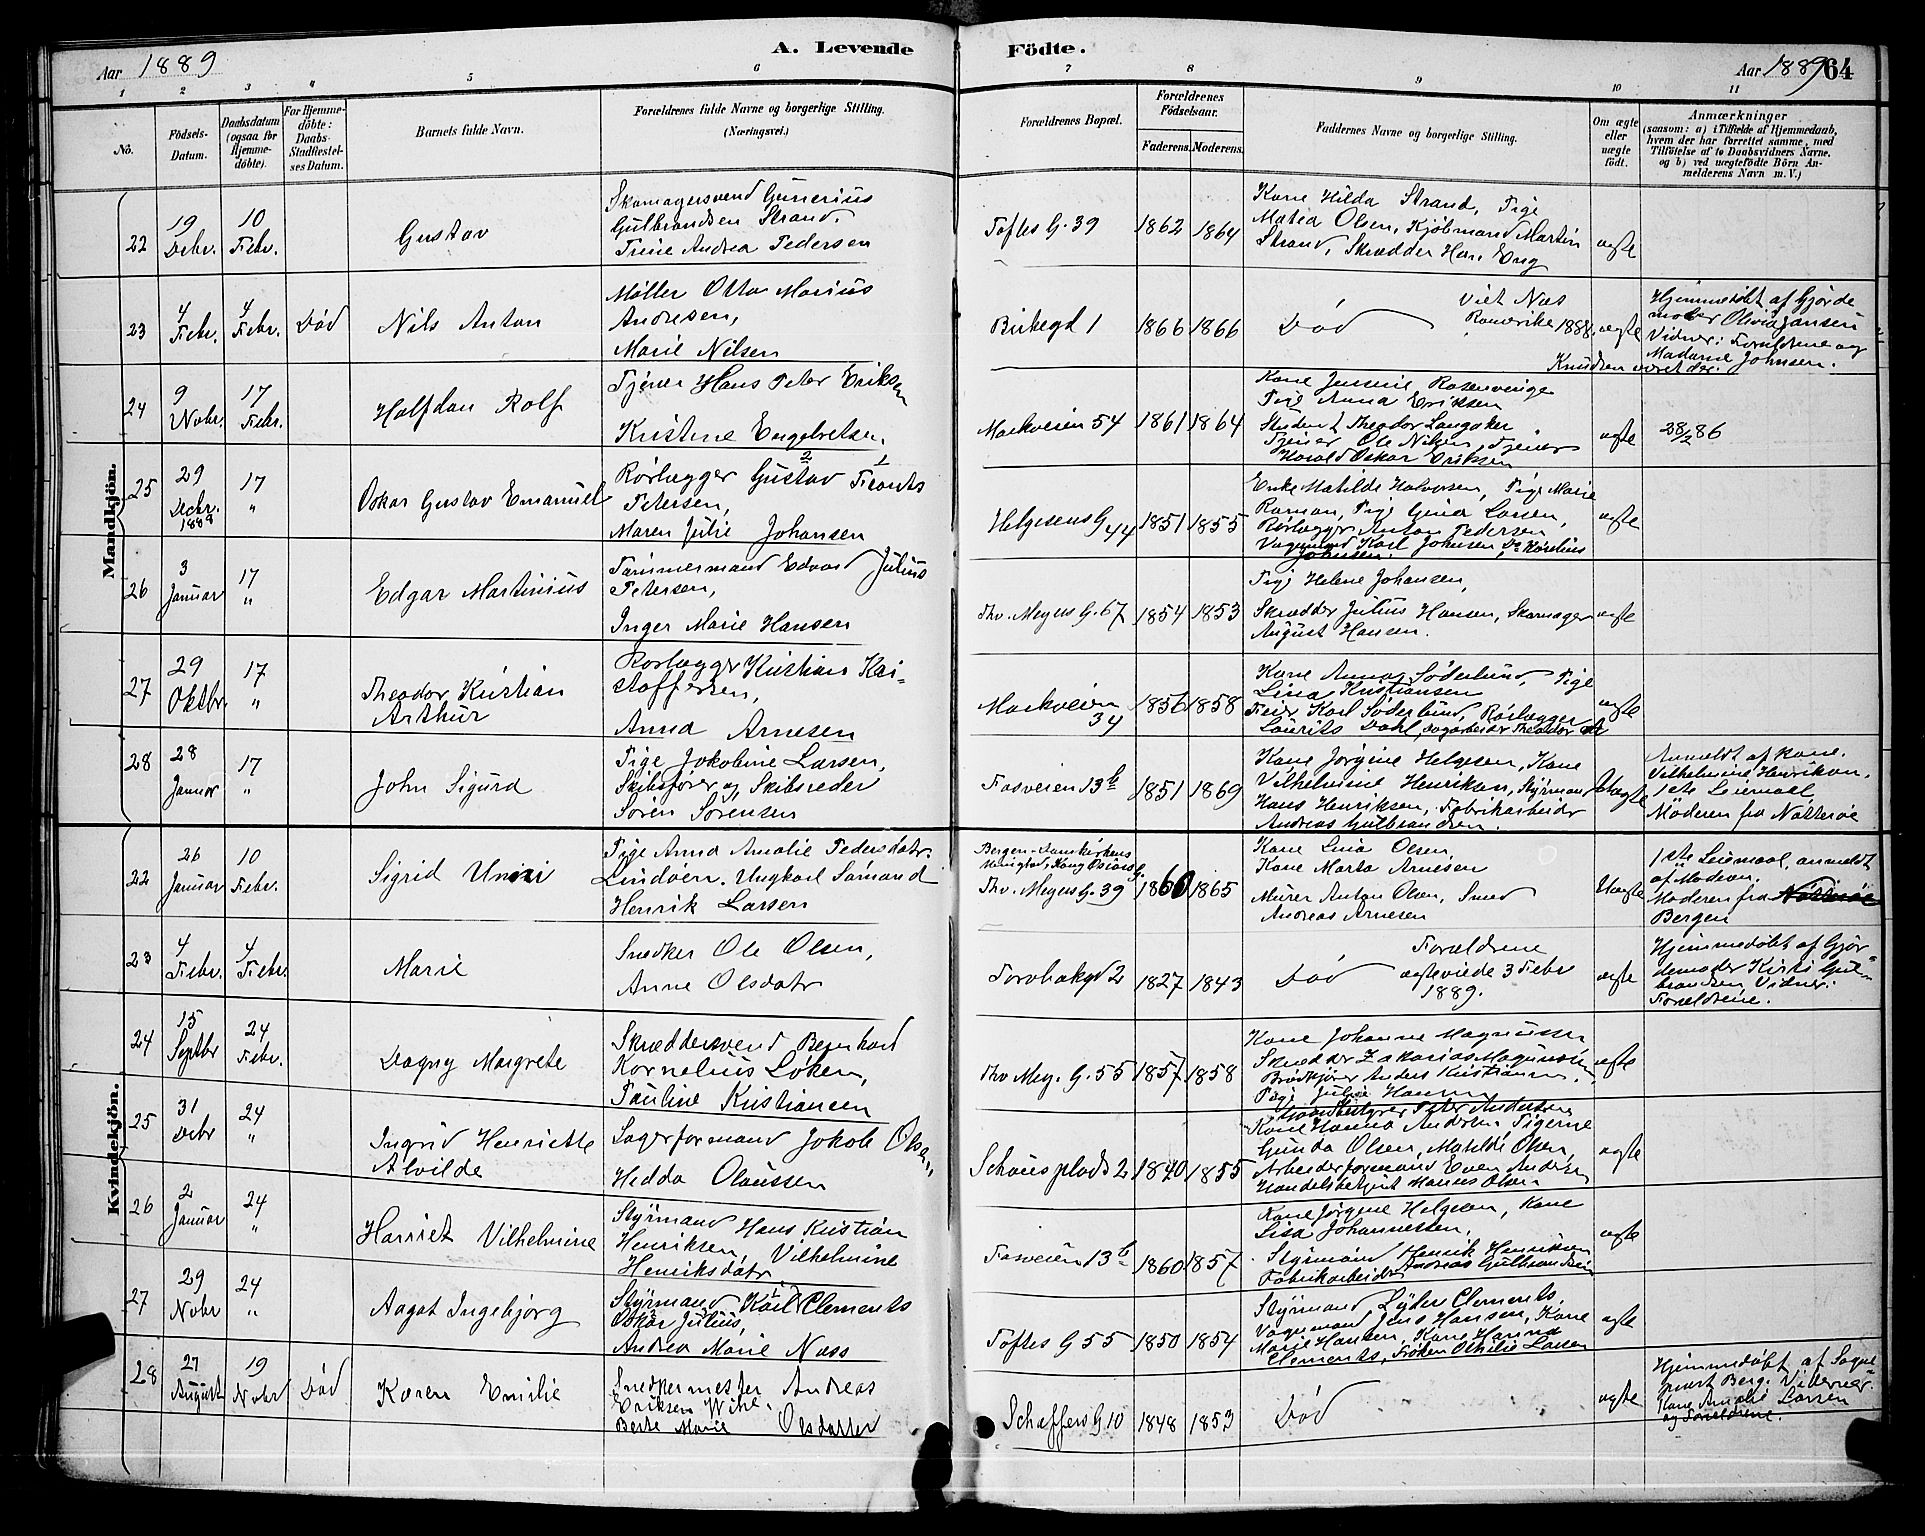 A. Levende Födte.
Aar 1889
Aar 1889 64
1 2 3 4 5 6 7 8 9 10 11
No.
Födsels-Datum.
Daabsdatum (ogsaa for Hjemme-döbte).
For Hjemme-döbte: Daabs-Stadfæstel-ses Datum.
Barnets fulde Navn.
Forældrenes fulde Navne og borgerlige Stilling. (Næringsvei.)
Forældrenes Bopæl.
Forældrenes Födselsaar.
Faderens. Moderens.
Faddernes Navne og borgerlige Stilling.
Om ægte eller uægte födt.
Anmærkninger
(saasom: a) i Tilfælde af Hjemmedaab, hvem der har forrettet samme, med Tilföielse af to Daabsvidners Navne, og b) ved uægtefödte Börn An-melderens Navn m. V.)
Mandkjön.
22
19 Debr.
10 Febr.
Gustav
Skomagersvend Gunerius
Gulbrandsen Strand.
Trine Andrea Pedersen
Toftes G. 39
1862 1864
Kone Hilda Strand, Pige
Matea Olsen, Kjöbmand Martin
Strand, Skrædder Hans Eng
ægte
23
4 Febr.
4 Febr.
Död
Nils Anton
Möller Otto Marius
Andresen,
Marie Nilsen
Birkegd 1
1866 1866
Död
Viet Næs
Romerike 1888.
ægte
Hjemmedöbt af Gjorde
moder Olivia Jansen
Vidner: Forældrene og
Madame Johnsen.
24
9 Novbr.
17 Febr.
Halfdan Rolf
Tjener Hans Peter Eriksen
Kristine Engebretsen.
Markveien 54
1861 1864
Kone Jensine Rosenvinge
Pige Anna Eriksen
Student Theodor Langaker
Tjener Ole Nilsen, Tjener
Harald Oskar Eriksen
ægte
28/2 86
25
29 Decbr. 1888
17 "
Oskar Gustav Emanuel
Rörlægger Gustav Frants
Petersen,
Maren Julie Johansen
Helgesens G 44
1851 1855
Enke Matilde Halvorsen, Pige Marie
Roman, Pige Gina Larsen,
Rörlægger Anton Pedersen
Vognmand Karl Johnsen, Do Karelius
Johnsen.
ægte
26
3 Januar
17 "
Edgar Martinius
Tømmermand Edvard Julius
Petersen,
Inger Marie Hansen
Thv. Meyers G. 67
1854 1853
Pige Helene Johansen,
Skrædder Julius Hansen, Skomager
August Hansen.
ægte
27
29 Oktbr.
17 "
Theodor Kristian
Arthur
Rörlægger Kristian Kri-
stoffersen,
Anna Arnesen
Markveien
34
1856 1858
Kone Anna Söderlund, Pige
Lina Kristiansen
Feier Karl Söderlund, Rörlægger
Laurits Dahl, Sagarbeider Theodor
ægte
28
28 Januar
17 "
John Sigurd
Pige Jakobine Larsen,
Skibsförer og Skibsreder
Sören Sörensen
Fosveien 13 b
1851 1869
Kone Jörgine Helgesen, Kone
Vilhelmine Henriksen, Styrmand
Hans Henriksen, Fabrikarbeider
Andreas Gulbrandsen.
Uægte
Anmeldt af Kone
Vilhelmine Henriksen.
1ste Leiermaal
Moderen fra Nötterøe
Kvindekjön.
22
26 Januar
10 Febr.
Sigrid Unni
Pige Anna Amalie Pedersdatr.
Lindøen. Ungkarl Sømand
Henrik Larsen
Thv. Meyers G. 39
1860 1865
Kone Lina Olsen,
Kone Marta Arnesen
Murer Anton Olsen, Smed
Andreas Arnesen
Uægte
1ste Leiermaal, anmeldt
af Moderen.
Moderen fra Nötterøe
Bergen
23
4 Febr.
4 Febr.
Marie
Snedker Ole Olsen,
Anne Olsdatr
Torvbakgd 2
1827 1843
Död
Forældrene
ægteviede 3 Febr
1889.
ægte
Hjemmedöbt af Gjor
demoder Kirsti Gul-
brandsen Vidner:
Forældrene.
24
15 Septbr
24 Febr.
Dagny Margrete
Skræddersvend Bernhard
Kornelius Löken,
Pauline Kristiansen
Thv Mey. G. 55
1857 1858
Kone Johanne Magnussen
Skrædder Zakarias Magnussen
Brödkjörer Anders Kristiansen,
Pige Julie Hansen
ægte
25
31 Debr
24 "
Ingrid Henriette
Alvilde
Lagerformand Jakob Olsen,
Hedda Olaussen
Schous plads 2
1840 1855
Handelsbestyrer Peter Andersen
Kone Hanna Andersen Pigerne
Gunda Olsen, Matilde Olsen,
Arbeiderformand Even Andersen
Handelsbetjent Hans Olsen
ægte
26
2 Januar
24 "
Harriet Vilhelmine
Styrmand Hans Kristian
Henriksen, Vilhelmine
Henriksdatr
Fosveien 13 b
1860 1857
Kone Jörgine Helgesen, Kone
Lisa Johannessen,
Styrmand Henrik Henriksen
Fabrikarbeider Andreas Gulbrandsen
ægte
27
29 Novbr
24 "
Aagot Ingebjörg
Styrmand Karl Clements
Oskar Julius,
Andrea Marie Næss
Toftes G 55
1850 1854
Styrmand Lyder Clements,
Vognmand Jens Hansen, Kone
Marie Hansen, Kone Hanna
Clements, Fröken Othilie Larsen
ægte
28
27 August
19 Novbr
Död
Karen Emilie
Snedkermester Andreas
Eriksen Wihl.
Berte Marie Olsdatter
Schaffers G 10
1848 1853
Död
ægte
Hjemmedöbt af Sogne
præst Berg. Vidner:
Kone Amalie Larsen
og Forældrene.